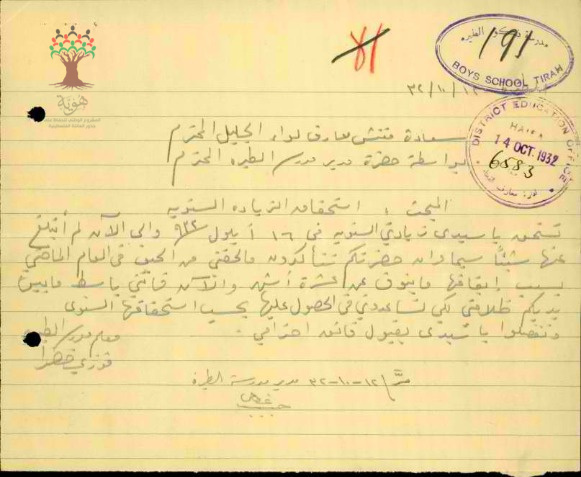 81
مدرسة ذكور الطيره
191
BOYS SCHOOL TIRAH
٣٢/١٠/١٢
DISTRICT EDUCATION OFFICE
HAIFA
14 OCT. 1932
6583
هوية
سعادة مفتش معارف لواء الجليل المحترم
بواسطة حضرة مدير مدرسة الطيره المحترم
المبحث : استحقاق الزياده السنويه
تستحق يا سيدي زيادتي السنويه في ١٦ أيلول ٩٣٢ والى الآن لم أتبلغ
عنها شيئًا سيما وان حضرتكم تتأكدون مالحقني من الحيف في العام الماضي
بسبب إيقافها ما ينوف عن عشرة أشهر والآن فانني باسط ما بين
يديكم ظلامتي لكي تساعدوني في الحصول عليها بحسب استحقاقها السنوى
وتفضلوا يا سيدي بقبول فائق احترامي .
معلم مدرسة الطيره
فوزي
١٢-١٠-٣٢ مدير مدرسة الطيرة